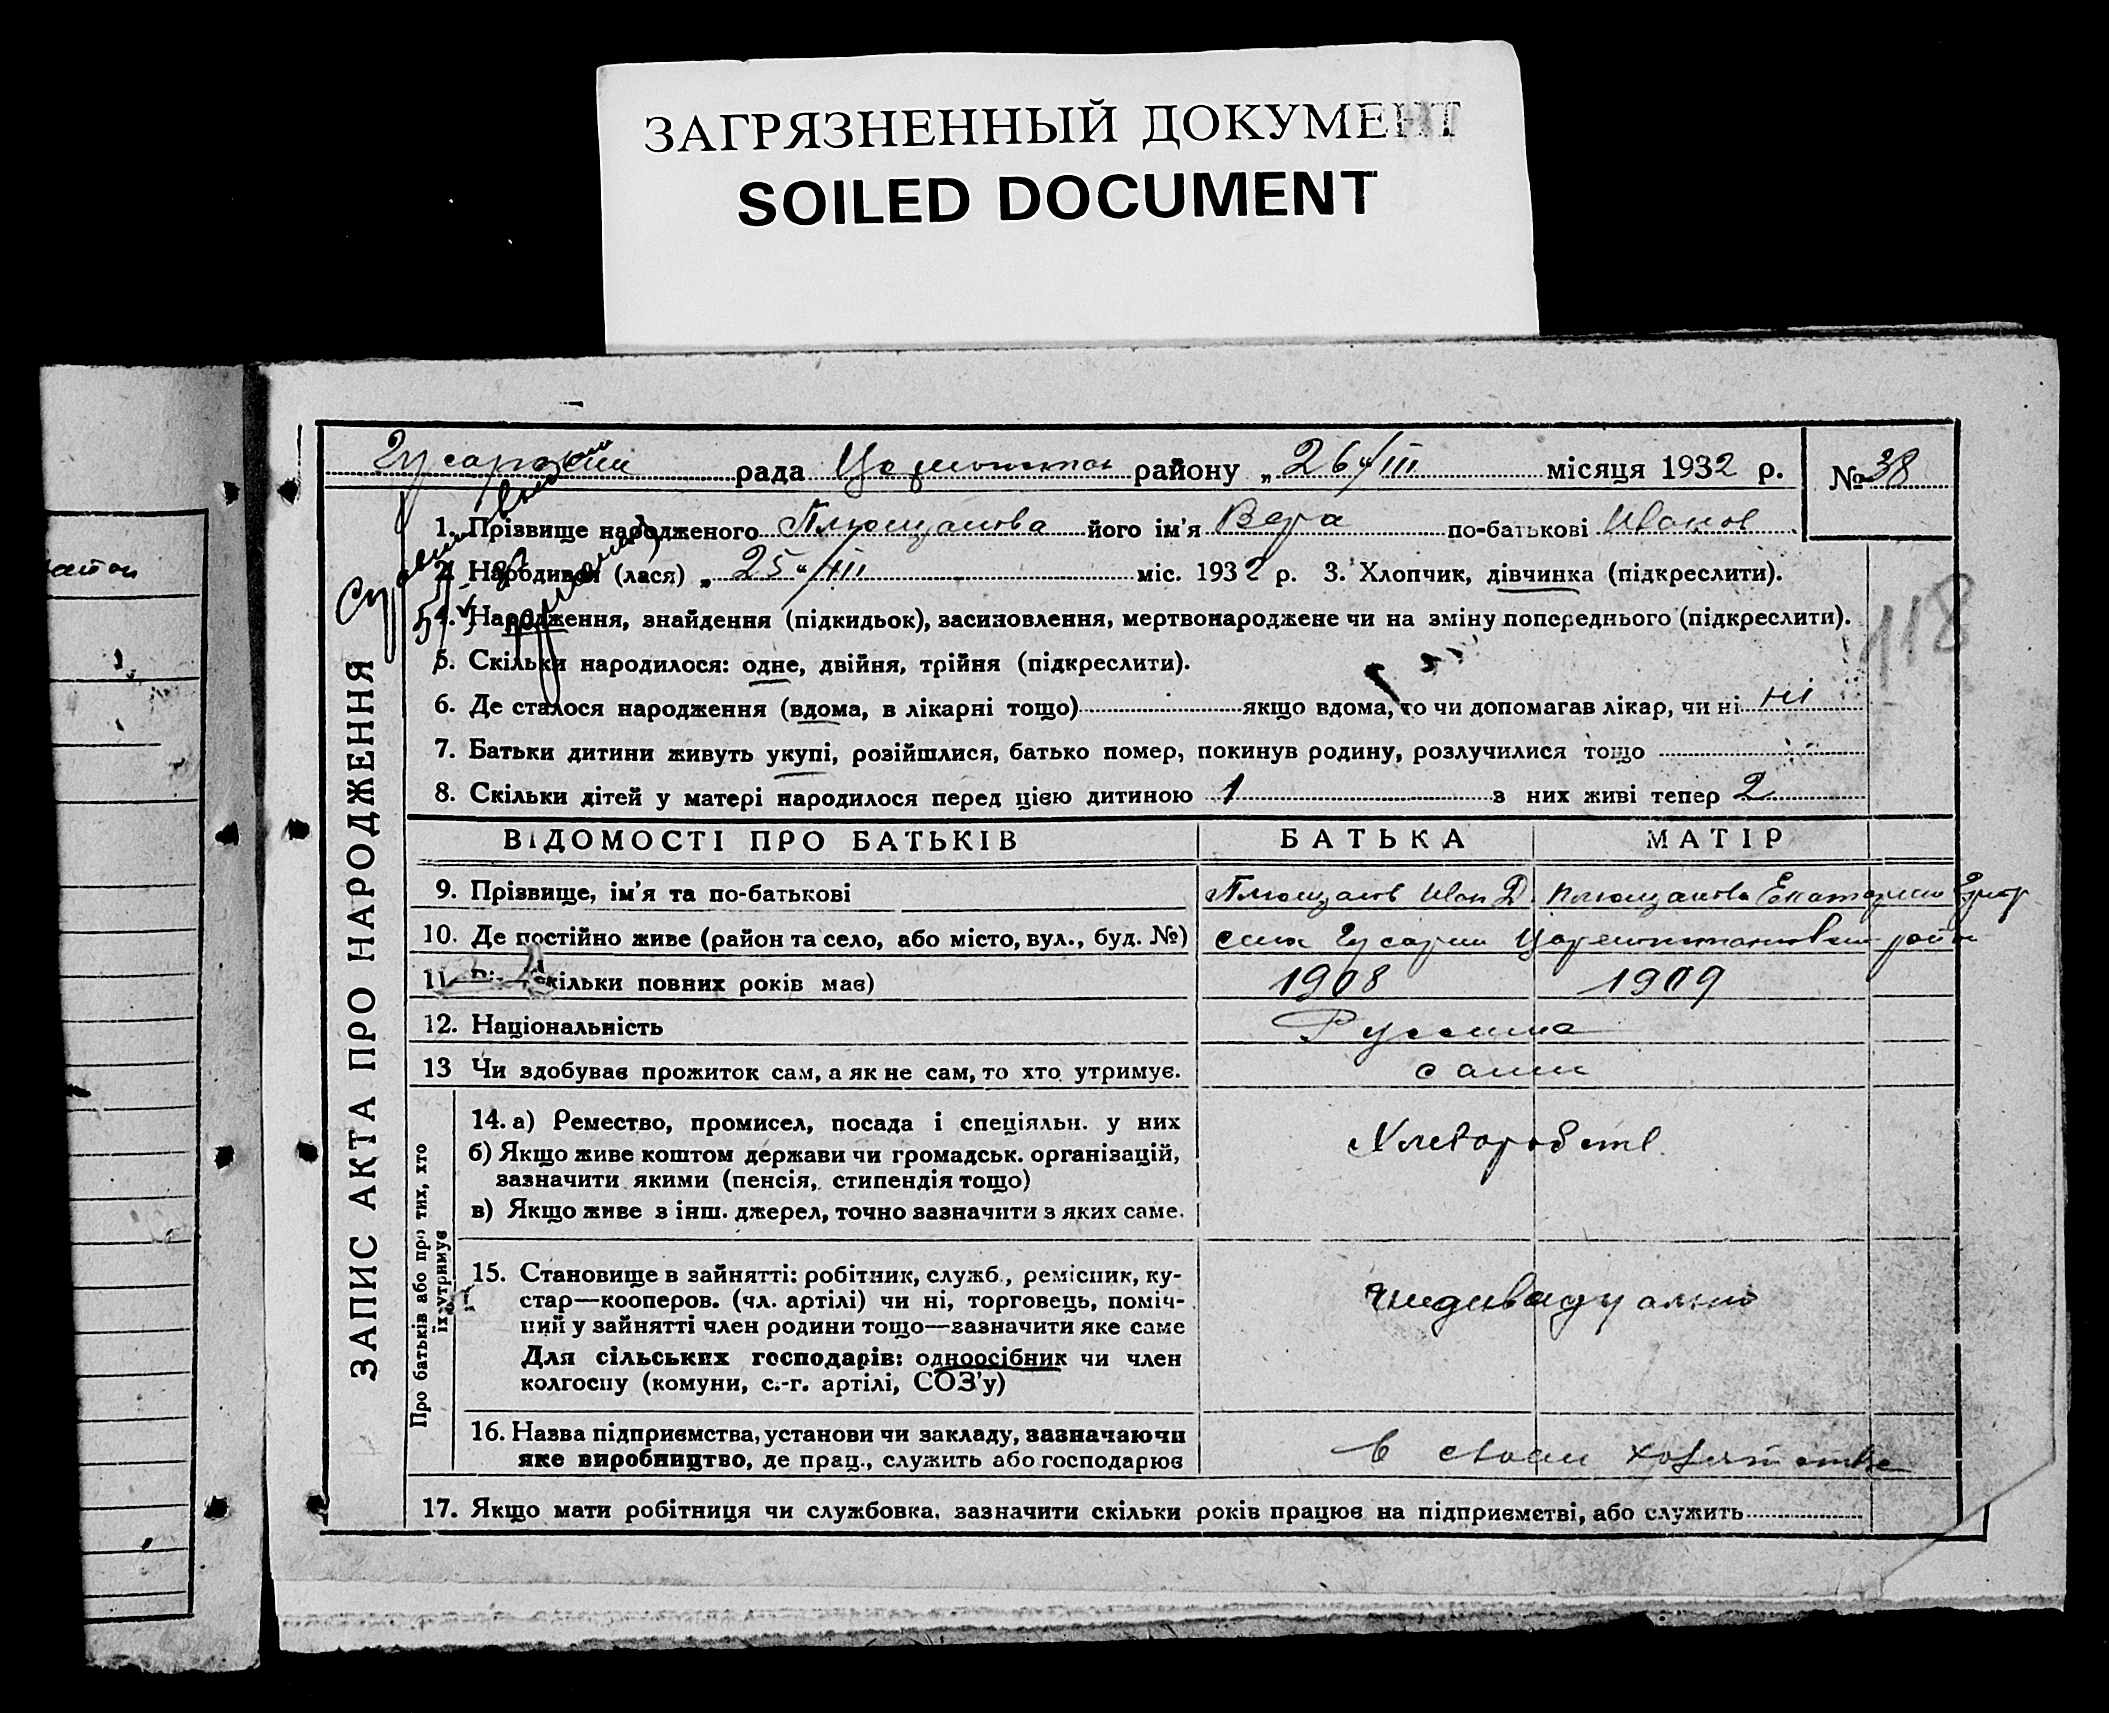 ЗАГРЯЗНЕННЫЙ ДОКУМЕНТ
SOILED DOCUMENT
рада района „26"/III місяця 1932 р. № 38
1. Прізвище народженого Плющанова його ім'я Вера по-батькові Иванов
2. Народився (лася) „25"/III міс. 1932 р. 3. Хлопчик, дівчинка (підкреслити).
4. Народження, знайдення (підкидьок), засиновлення, мертвонароджене чи на зміну попереднього (підкреслити).
118
5. Скільки народилося: одне, двійня, трійня (підкреслити).
6. Де сталося народження (вдома, в лікарні тощо) якщо вдома, то чи допомагав лікар, чи ні ні
7. Батьки дитини живуть укупі, розійшлися, батько помер, покинув родину, розлучилися тощо
8. Скільки дітей у матері народилося перед цією дитиною 1 з них живі тепер 2
ЗАПИС АКТА ПРО НАРОДЖЕННЯ
ВІДОМОСТІ ПРО БАТЬКІВ БАТЬКА МАТІР
9. Прізвище, ім'я та по-батькові Плющанов Иван Д. Плющанова Екатерина
10. Де постійно живе (район та село, або місто, вул., буд. №)
11. скільки повних років має) 1908 1909
12. Національність
13 Чи здобуває прожиток сам, а як не сам, то хто утримує. сами
Про батьків або про тих, хто їх утримує
14. а) Ремество, промисел, посада і спеціяльн. у них
б) Якщо живе коштом держави чи громадськ. організацій,
зазначити якими (пенсія, стипендія тощо)
в) Якщо живе з інш. джерел, точно зазначити з яких саме.
15. Становище в зайнятті: робітник, служб., ремісник, ку-
стар—кооперов. (чл. артілі) чи ні, торговець, поміч-
ний у зайнятті член родини тощо—зазначити яке саме
Для сільських господарів: одноосібник чи член
колгоспу (комуни, с.-г. артілі, СОЗ'у)
16. Назва підприємства, установи чи закладу, зазначаючи
яке виробництво, де прац., служить або господарює в своем хозяйстве
17. Якщо мати робітниця чи службовка, зазначити скільки років працює на підприємстві, або служить